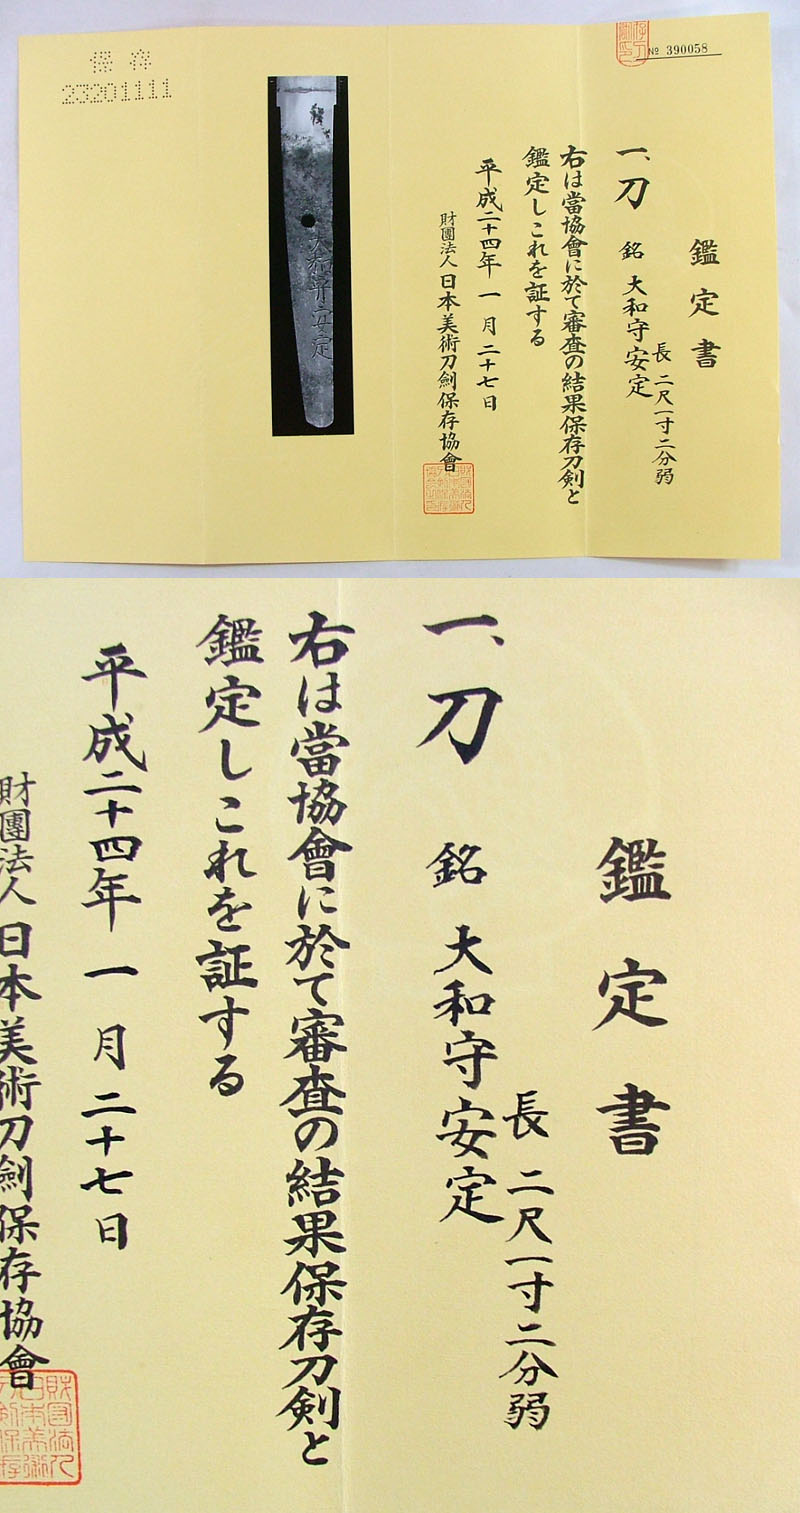 保存
23201111
№ 390058
鑑定書
一、刀 銘 大和守安定
長 二尺一寸二分弱
右は當協會に於て審査の結果保存刀剣と
鑑定しこれを証する
平成二十四年一月二十七日
財團法人日本美術刀劍保存協會
大和守安定
鑑定書
一、刀 銘 大和守安定
長 二尺一寸二分弱
右は當協會に於て審査の結果保存刀剣と
鑑定しこれを証する
平成二十四年一月二十七日
財團法人日本美術刀劍保存協會